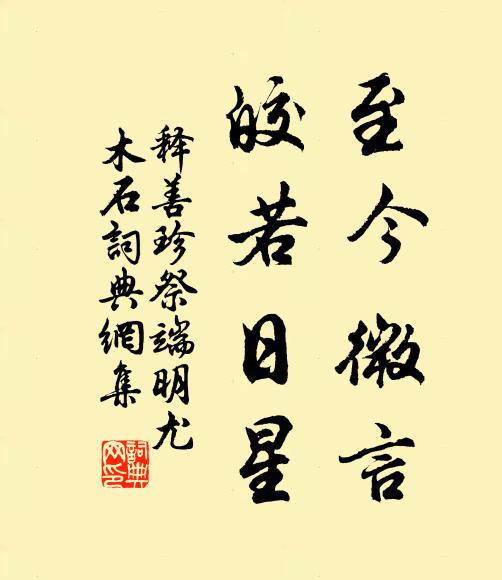 至今微言
皎若日星
释善珍祭端明尤
木石詞典網集
詞典
网印